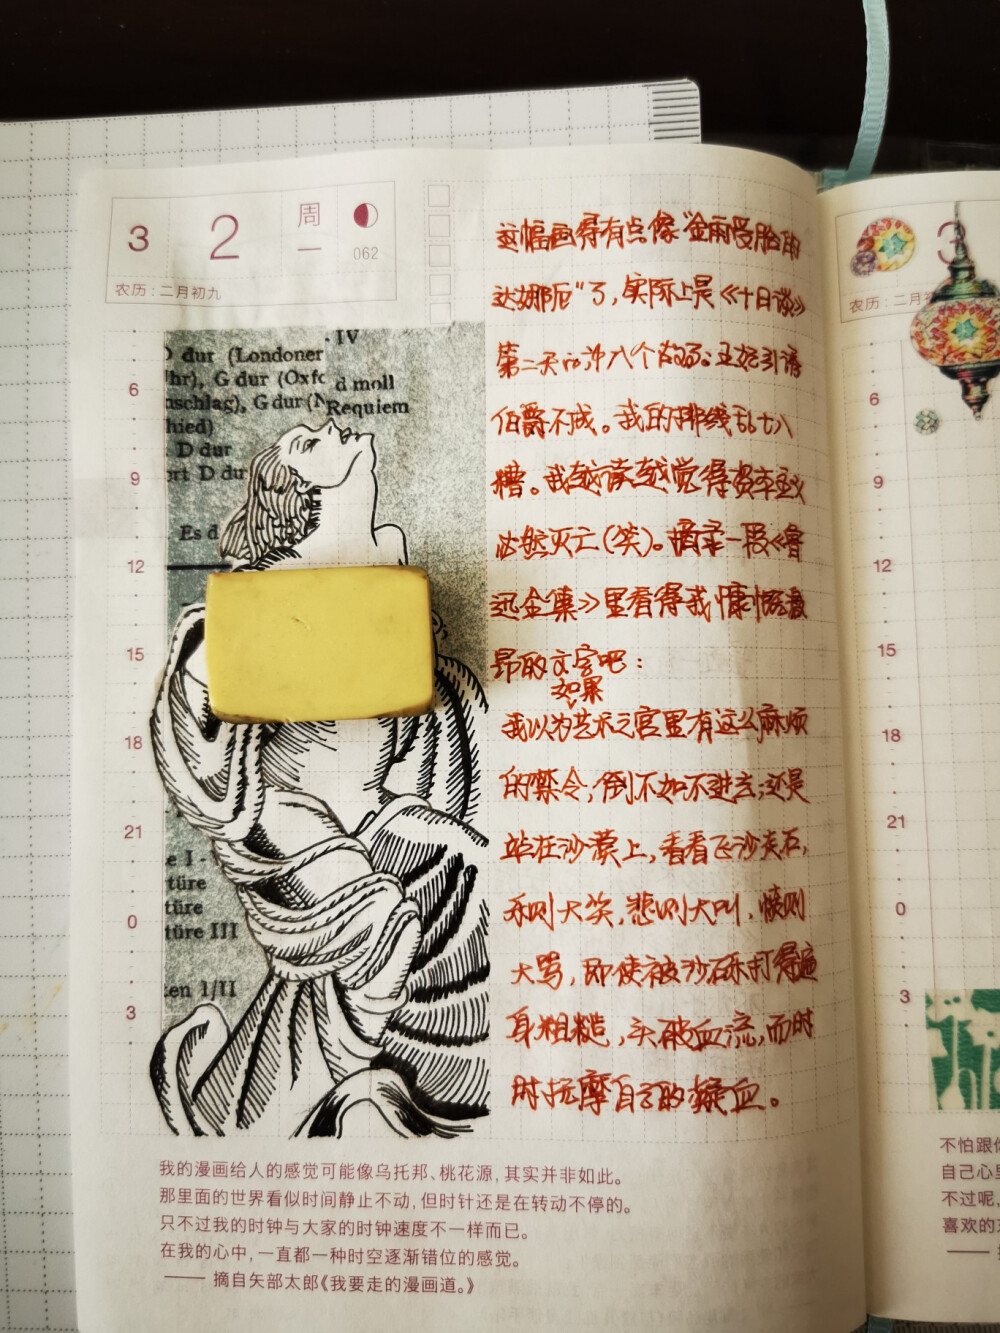 3 2 周一
062
农历：二月初九
6
9
12
15
18
21
0
3
IV
D dur (Londoner
d moll
Requiem
D dur
rt D dur
Es d
türe
türe
türe III
en I/II
这幅画得有点像“金雨受胎的
达娜厄”了，实际上是《十日谈》
第二天的第八个故事：王妃引诱
伯爵不成。我的排线乱七八
糟。我越读越觉得资本主义
必然灭亡（笑）。摘录一段《鲁
迅全集》里看得我慷慨激
昂的文字吧：
如果
我以为艺术之宫里有这么麻烦
的禁令，倒不如不进去；还是
站在沙漠上，看看飞沙走石，
乐则大笑，悲则大叫，愤则
大骂，即使被沙砾打得遍
身粗糙，头破血流，而时
时抚摩自己的凝血。
我的漫画给人的感觉可能像乌托邦、桃花源，其实并非如此。
那里面的世界看似时间静止不动，但时针还是在转动不停的。
只不过我的时钟与大家的时钟速度不一样而已。
在我的心中，一直都一种时空逐渐错位的感觉。
—— 摘自矢部太郎《我要走的漫画道。》
3
农历：二月
6
9
12
15
18
21
0
3
不怕跟
自己心
不过呢，
喜欢的